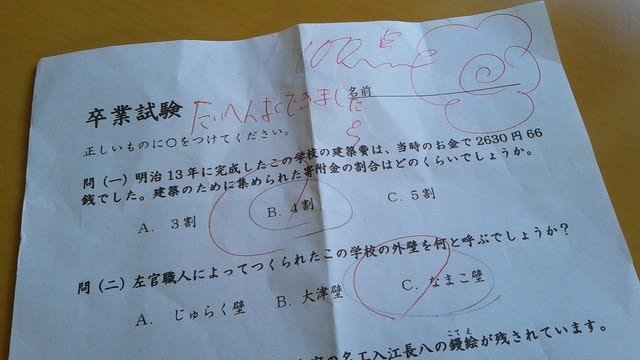 100点
卒業試験
たいへんよくできました
名前
正しいものに○をつけてください。
問(一)明治13年に完成したこの学校の建築費は、当時のお金で2630円66
銭でした。建築のために集められた寄附金の割合はどのくらいでしょうか。
A. 3割 B. 4割 C. 5割
問(二)左官職人によってつくられたこの学校の外壁を何と呼ぶでしょうか?
A. じゅらく壁 B. 大津壁 C. なまこ壁
の名工入江長八の鏝絵が残されています。
こてえ